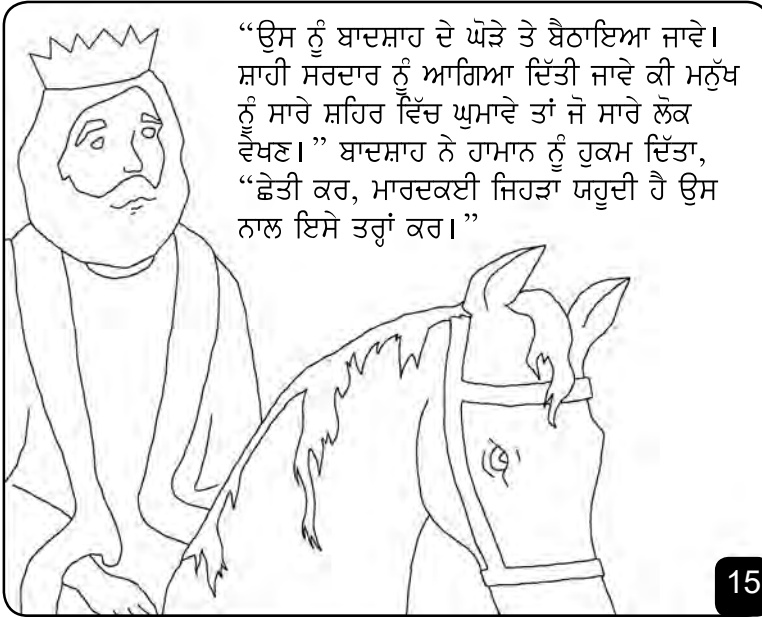 “ਉਸ ਨੂੰ ਬਾਦਸ਼ਾਹ ਦੇ ਘੋੜੇ ਤੇ ਬੈਠਾਇਆ ਜਾਵੇ।
ਸ਼ਾਹੀ ਸਰਦਾਰ ਨੂੰ ਆਗਿਆ ਦਿੱਤੀ ਜਾਵੇ ਕੀ ਮਨੁੱਖ
ਨੂੰ ਸਾਰੇ ਸ਼ਹਿਰ ਵਿੱਚ ਘੁਮਾਵੇ ਤਾਂ ਜੋ ਸਾਰੇ ਲੋਕ
ਵੇਖਣ।” ਬਾਦਸ਼ਾਹ ਨੇ ਹਾਮਾਨ ਨੂੰ ਹੁਕਮ ਦਿੱਤਾ,
“ਛੇਤੀ ਕਰ, ਮਾਰਦਕਈ ਜਿਹੜਾ ਯਹੂਦੀ ਹੈ ਉਸ
ਨਾਲ ਇਸੇ ਤਰ੍ਹਾਂ ਕਰ।”
15